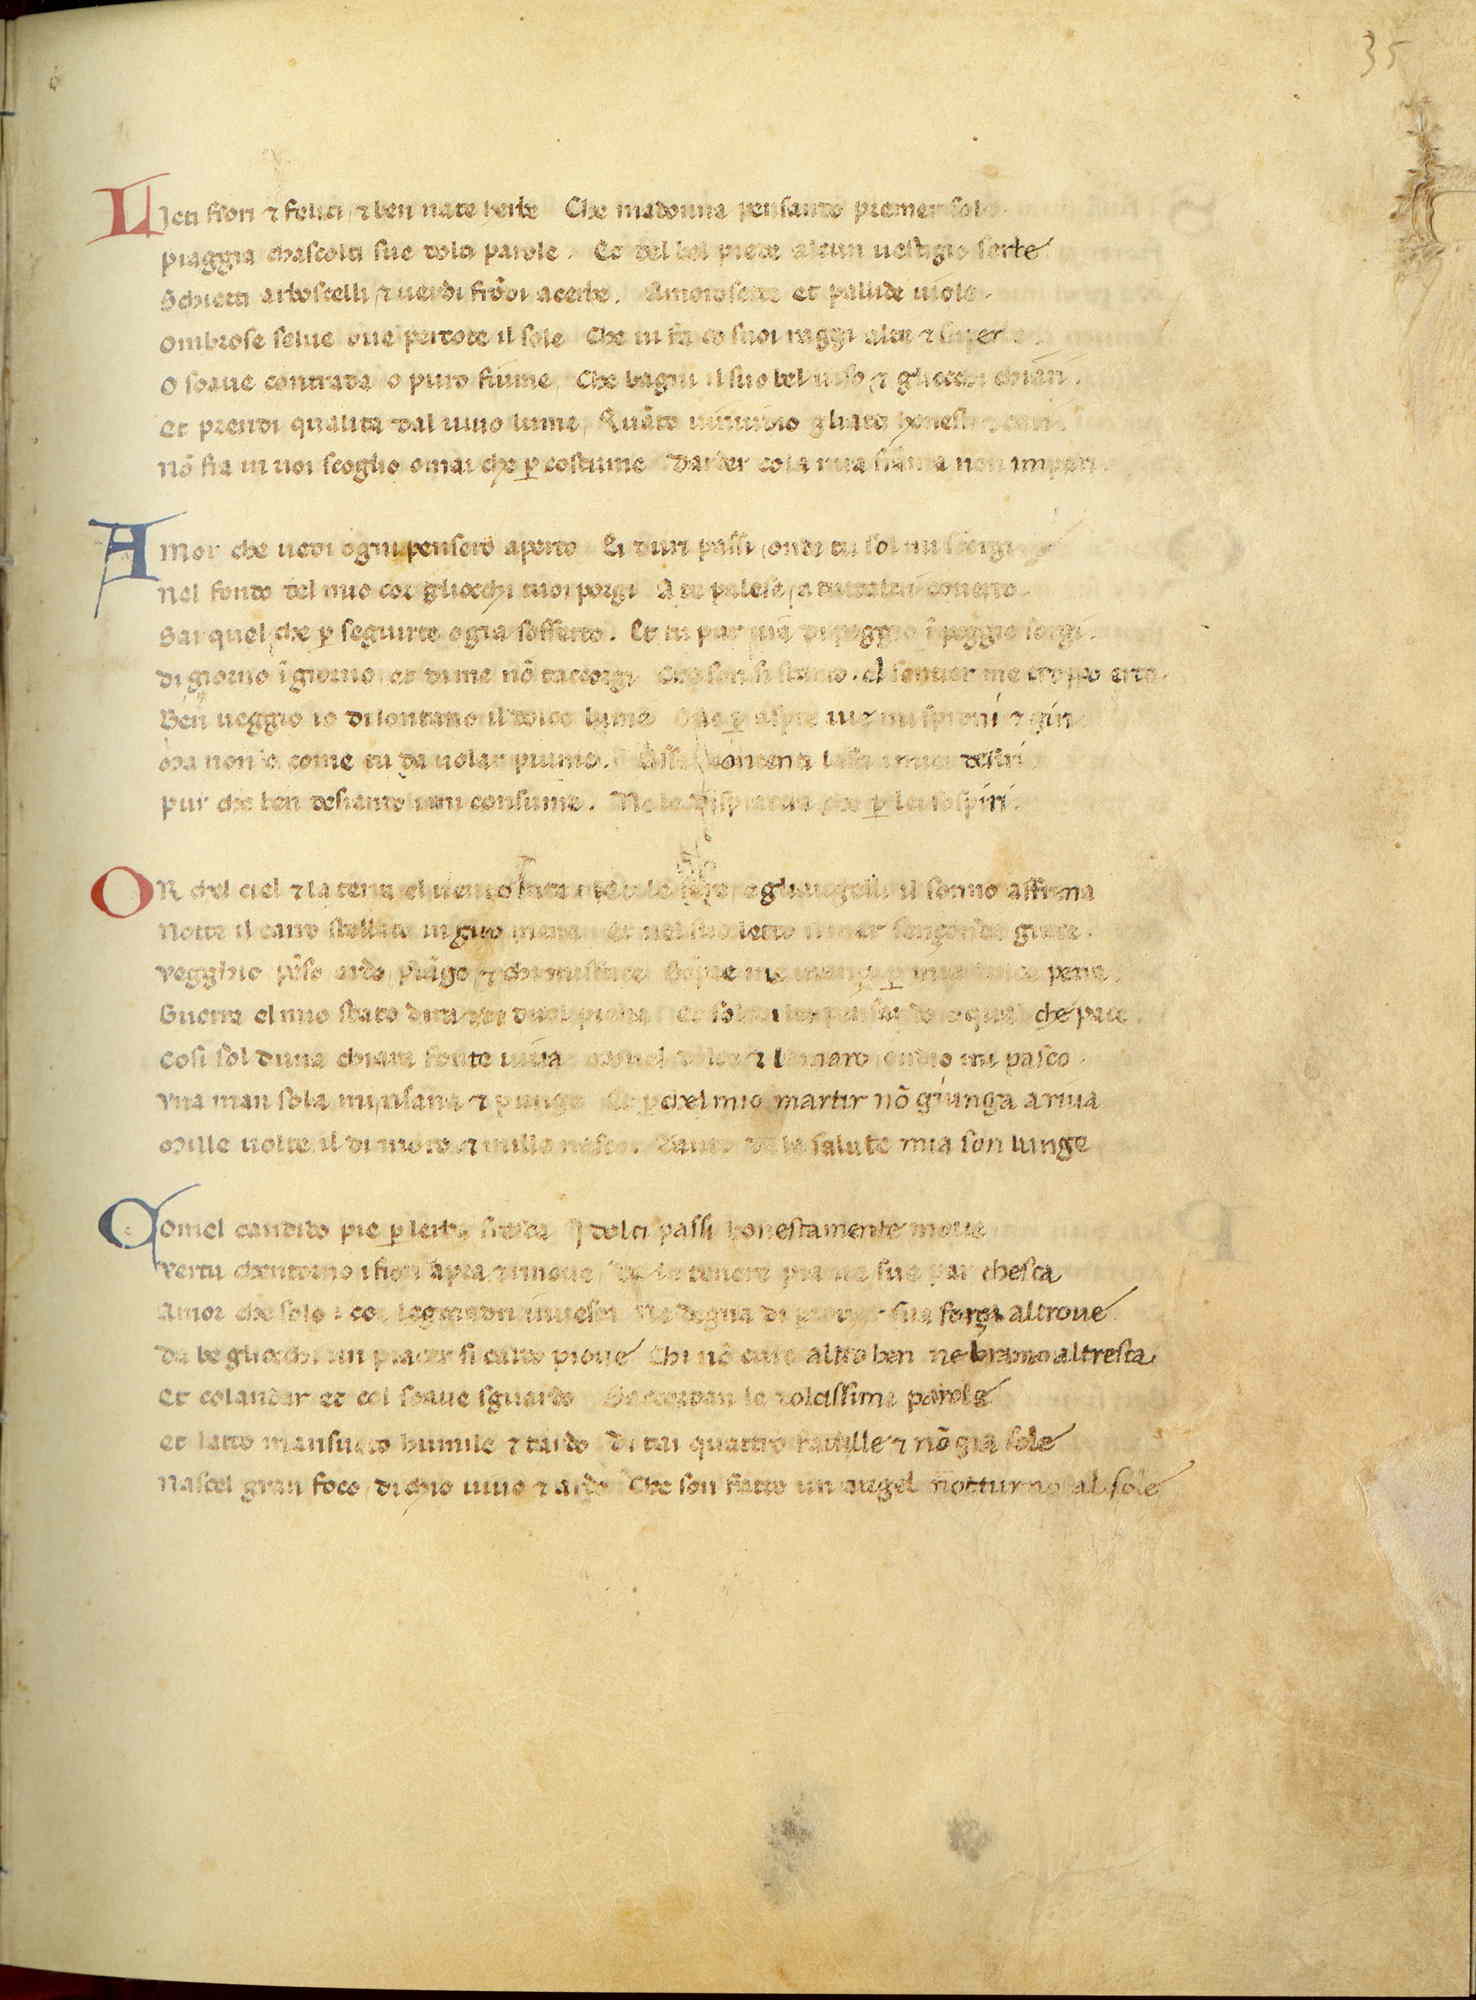 35
LIeti fiori & felici, & ben nate herbe Che madonna pensando premer sole
piaggia chascolti sue dolci parole. Et del bel piede alcun uestigio serbe
Schietti arboscelli, & uerdi frōdi acerbe. Amorosette et pallide uiole.
ombrose selue oue percote il sole Che ui fa co suoi raggi alte &
O soaue contrada o puro fiume, Che bagni il suo bel uiso, & gliocchi chiari.
Et prendi qualita dal uiuo lume, Quāto gliatti honesti
nō fia in uoi scoglio omai che p costume Darder co la mia fiāma non impari
AMor che uedi ogni pensero aperto Ei duri passi, onde tu sol mi scorgi
nel fondo del mio cor gliocchi tuoi porgi A te palese, a tuttaltri couerto.
Sai quel che p seguirte o gia sofferto. Et tu pur uia di poggio ī poggio sorgi.
di giorno ī giorno et di me nō taccorgi Che son si stanco. el sentier me troppo erto.
Ben ueggio io di lontano il dolce lume Oue p aspre uie mi sproni &
Ma non o come tu da uolar piume. Assai contenti lasci
pur che ben desiando i mi consume. Ne le dispiaccia che p lei sospiri.
OR chel ciel & la terra el uento gliaugelli il sonno affrena
Notte il carro stellato in giro mena Et nel suo letto il mar senzonda giace.
vegghio pēso ardo piāgo, & chi mi sface Sēpre me inanzi p mia dolce pena.
Guerra el mio stato dira & duol piena che pace
Cosi sol duna chiara fonte uiua moue l dolce & lamaro, ondio mi pasco.
vna man sola mi risana & punge Et p chel mio martir nō giunga a riua
Mille uolte il di moro & mille nasco. Tanto da la salute mia son lunge
COmel candido pie p lerba fresca I dolci passi honestamente moue
vertu chentorno i fiori apra & rinoue, De le tenere piante sue par chesca
Amor che solo i cor leggiadri inuesca Ne degna di prouar sua forza altroue
da be gliocchi un piacer si caldo pioue Chi nō curo altro ben ne bramo altresca
Et colandar et col soaue sguardo Saccordan le dolcissime parole
et latto mansueto humile & tardo di tai quattro fauille & nō gia sole
Nascel gran foco, di chio uiuo & ardo Che son fatto un augel notturno al sole